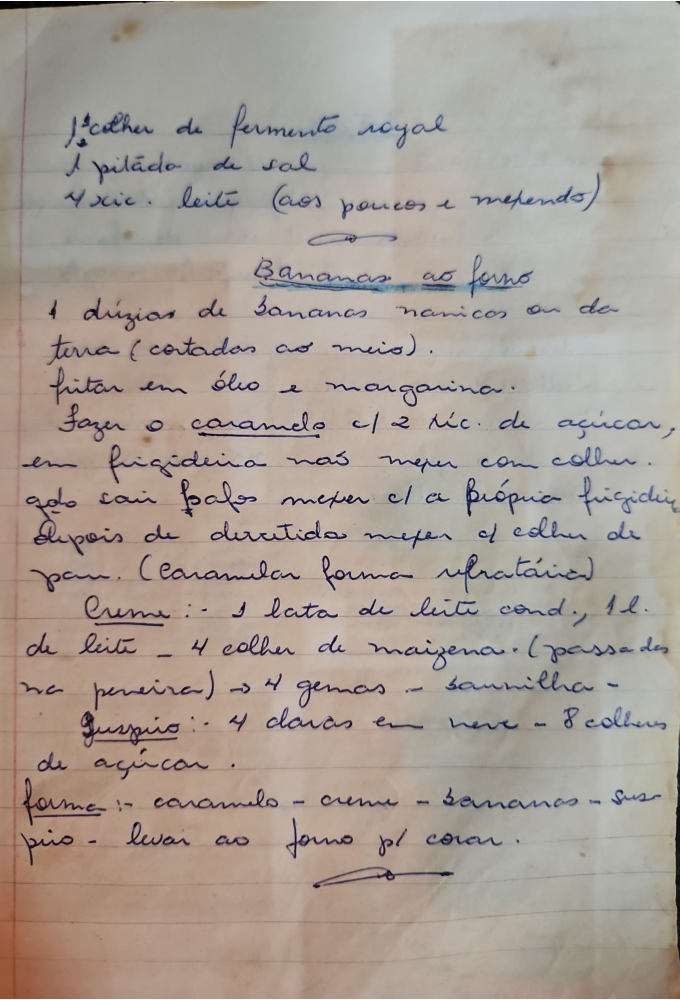 1 colher de fermento royal
1 pitáda de sal
4 xic. leite (aos poucos e mexendo)
Bananas ao forno
1 dúzias de bananas nanicas ou da
terra (cortadas ao meio).
fritar em óleo e margarina.
Fazer o caramelo c/ 2 xíc. de açúcar,
em frigideira não mexer com colher.
qdo sair bafos mexer c/ a própria frigideira
depois de derretida mexer c/ colher de
pau. (caramelar forma refratária)
Creme:- 1 lata de leite cond., 1 l.
de leite - 4 colher de maizena. (passadas
na peneira) → 4 gemas - baunilha -
Suspiro:- 4 claras em neve - 8 colheres
de açúcar.
forma:- caramelo - creme - bananas - sus-
piro - levar ao forno p/ corar.